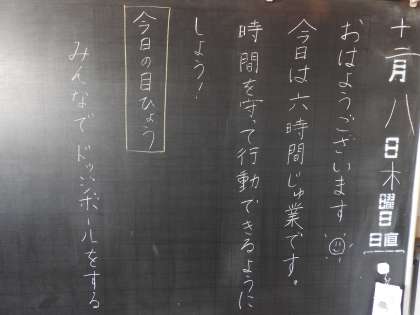 十二月八日木曜日
日直
おはようございます
今日は六時間じゅ業です。
時間を守って行動できるように
しょう!
今日の目ひょう
みんなでドッジボールをする